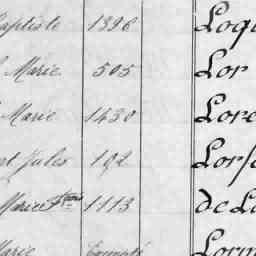 aptiste 1396 Loq
Marie 505 Lor
Marie 1430 Lore
nt Jules 192 Lor
Marie 1113 de Lo
Marie Lorm